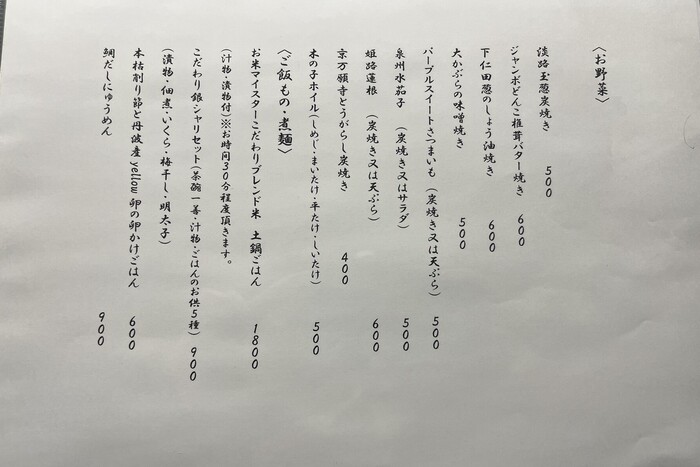 〈お野菜〉
淡路玉葱炭焼き 500
ジャンボどんこ椎茸バター焼き 600
下仁田葱のしょう油焼き 600
大かぶらの味噌焼き 500
パープルスイートさつまいも（炭焼き又は天ぷら） 500
泉州水茄子（炭焼き又はサラダ） 500
姫路蓮根（炭焼き又は天ぷら） 600
京万願寺とうがらし炭焼き 400
木の子ホイル（しめじ・まいたけ・平たけ・しいたけ） 500
〈ご飯もの・煮麺〉
お米マイスターこだわりブレンド米 土鍋ごはん 1800
（汁物・漬物付）※お時間30分程度頂きます。
こだわり銀シャリセット（茶碗一善・汁物・ごはんのお供5種） 900
（漬物・佃煮・いくら・梅干し・明太子）
本枯削り節と丹波産yellow卵の卵かけごはん 600
鯛だしにゅうめん 900